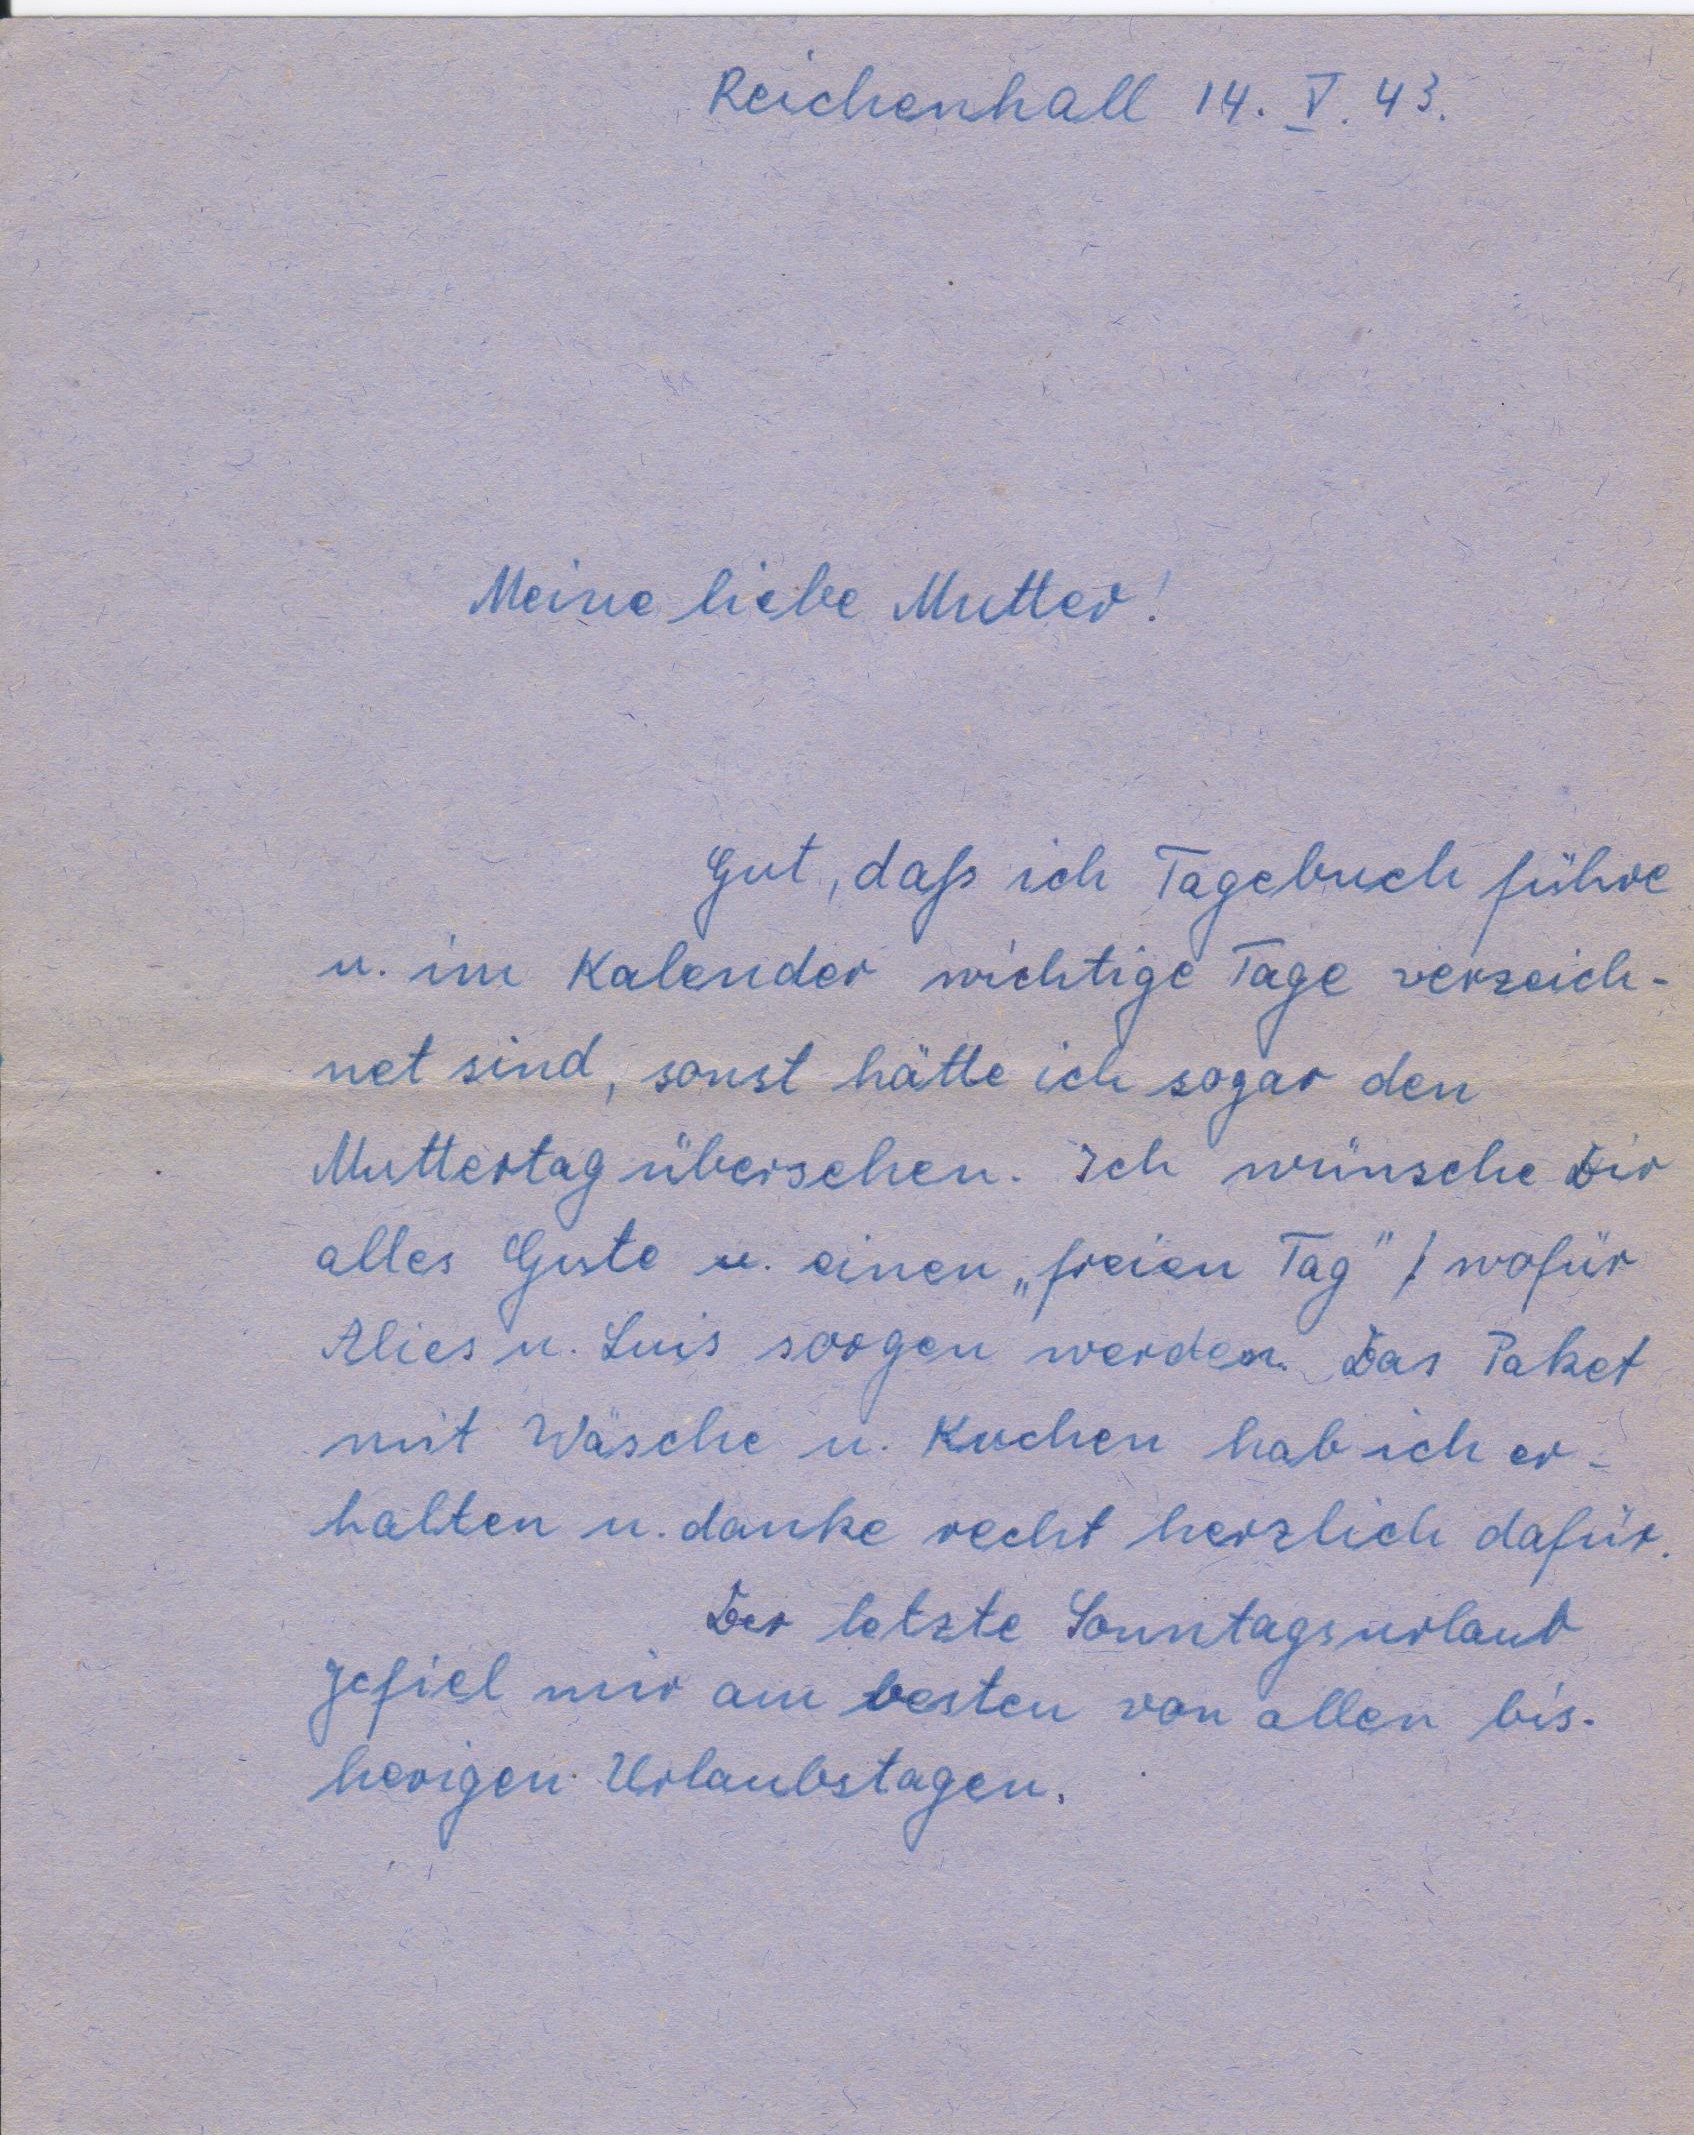 Reichenhall 14. V. 43.
Meine liebe Mutter!
Gut, daß ich Tagebuch führe
u. im Kalender wichtige Tage verzeich-
net sind, sonst hätte ich sogar den
Muttertag übersehen. Ich wünsche Dir
alles Gute u. einen „freien Tag" / wofür
Alies u. Luis sorgen werden. Das Paket
mit Wäsche u. Kuchen hab ich er-
halten u. danke recht herzlich dafür.
Der letzte Sonntagsurlaub
gefiel mir am besten von allen bis-
herigen Urlaubstagen.